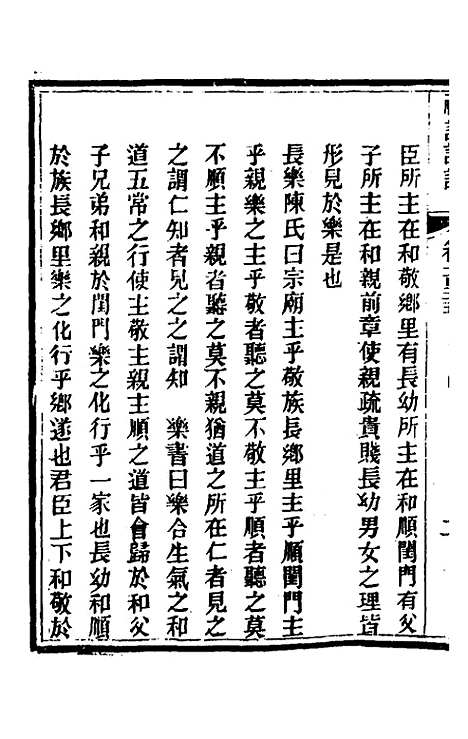 臣所主在和敬鄉里有長幼所主在和順閨門有父
子所主在和親前章使親疏貴賤長幼男女之理皆
形見於樂是也
長樂陳氏曰宗廟主乎敬族長鄉里主乎順閨門主
乎親樂之主乎敬者聽之莫不敬主乎順者聽之莫
不順主乎親者聽之莫不親猶道之所在仁者見之
之謂仁知者見之之謂知　樂書曰樂合生氣之和
道五常之行使主敬主親主順之道皆會歸於和父
子兄弟和親於閨門樂之化行乎一家也長幼和順
於族長鄉里樂之化行乎鄉遂也君臣上下和敬於